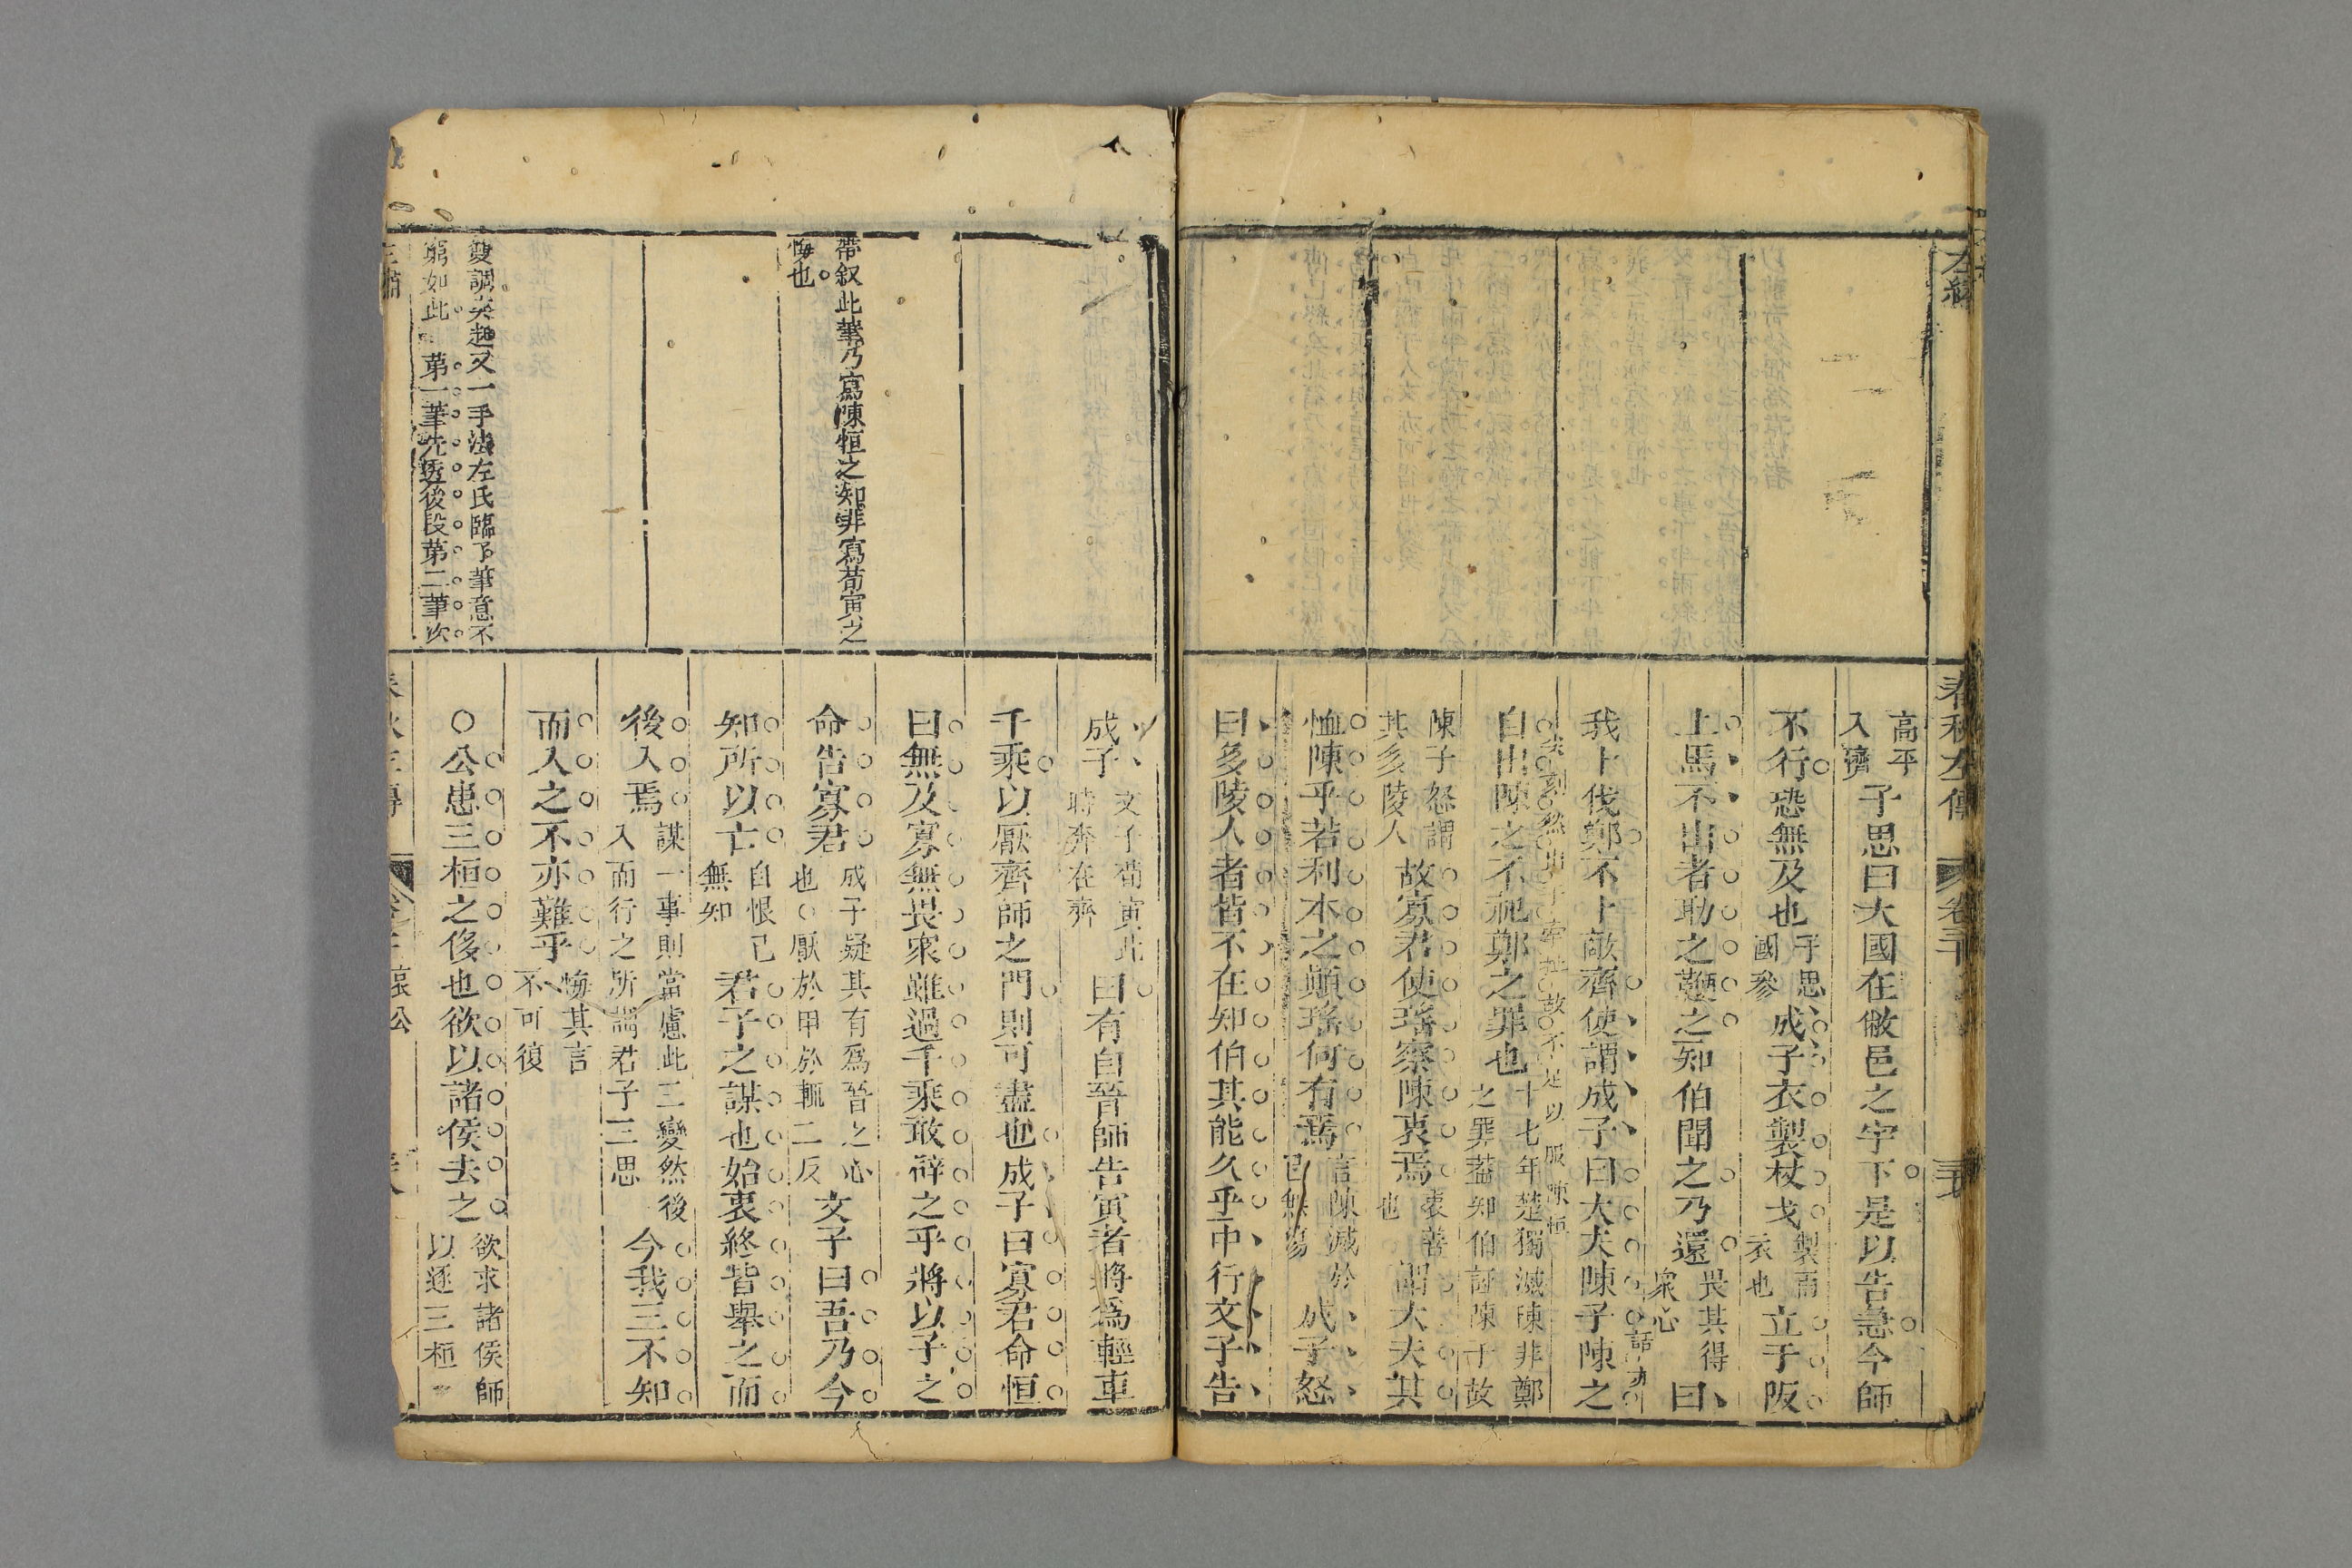 左繡
春秋左傳
卷三十
高平
入濟
子思曰大國在敝邑之宇下是以告急今師
不行恐無及也
子思
國參
成子衣製杖戈
製雨
衣也
立于阪
上馬不出者助之鞭之知伯聞之乃還
畏其得
衆心
曰
我卜伐鄭不卜敵齊使謂成子曰大夫陳子陳之
自出陳之不祀鄭之罪也
十七年楚獨滅陳非鄭
之罪蓋知伯誣陳子故
陳子怒謂
其多陵人
故寡君使瑤察陳衷焉
衷善
也
謂大夫其
恤陳乎若利本之顛瑤何有焉
言陳滅於
己無傷
成子怒
曰多陵人者皆不在知伯其能久乎中行文子告
成子
文子荀寅此
時奔在齊
曰有自晉師告寅者將爲輕車
千乘以厭齊師之門則可盡也成子曰寡君命恒
曰無及寡無畏衆雖過千乘敢辟之乎將以子之
命告寡君
成子疑其有爲晉之心
也○厭於甲於輒二反
文子曰吾乃今
知所以亡
自恨已
無知
君子之謀也始衷終皆舉之而
後入焉
謀一事則當慮此三變然後
入而行之所謂君子三思
今我三不知
而入之不亦難乎
悔其言
不可復
○公患三桓之侈也欲以諸侯去之
欲求諸侯師
以逐三桓
帶叙此筆乃寫陳恒之知非寫荀寅之
悔也
雙調夾趂又一手法左氏臨了筆意不
窮如此
第一筆先透後段第二筆次